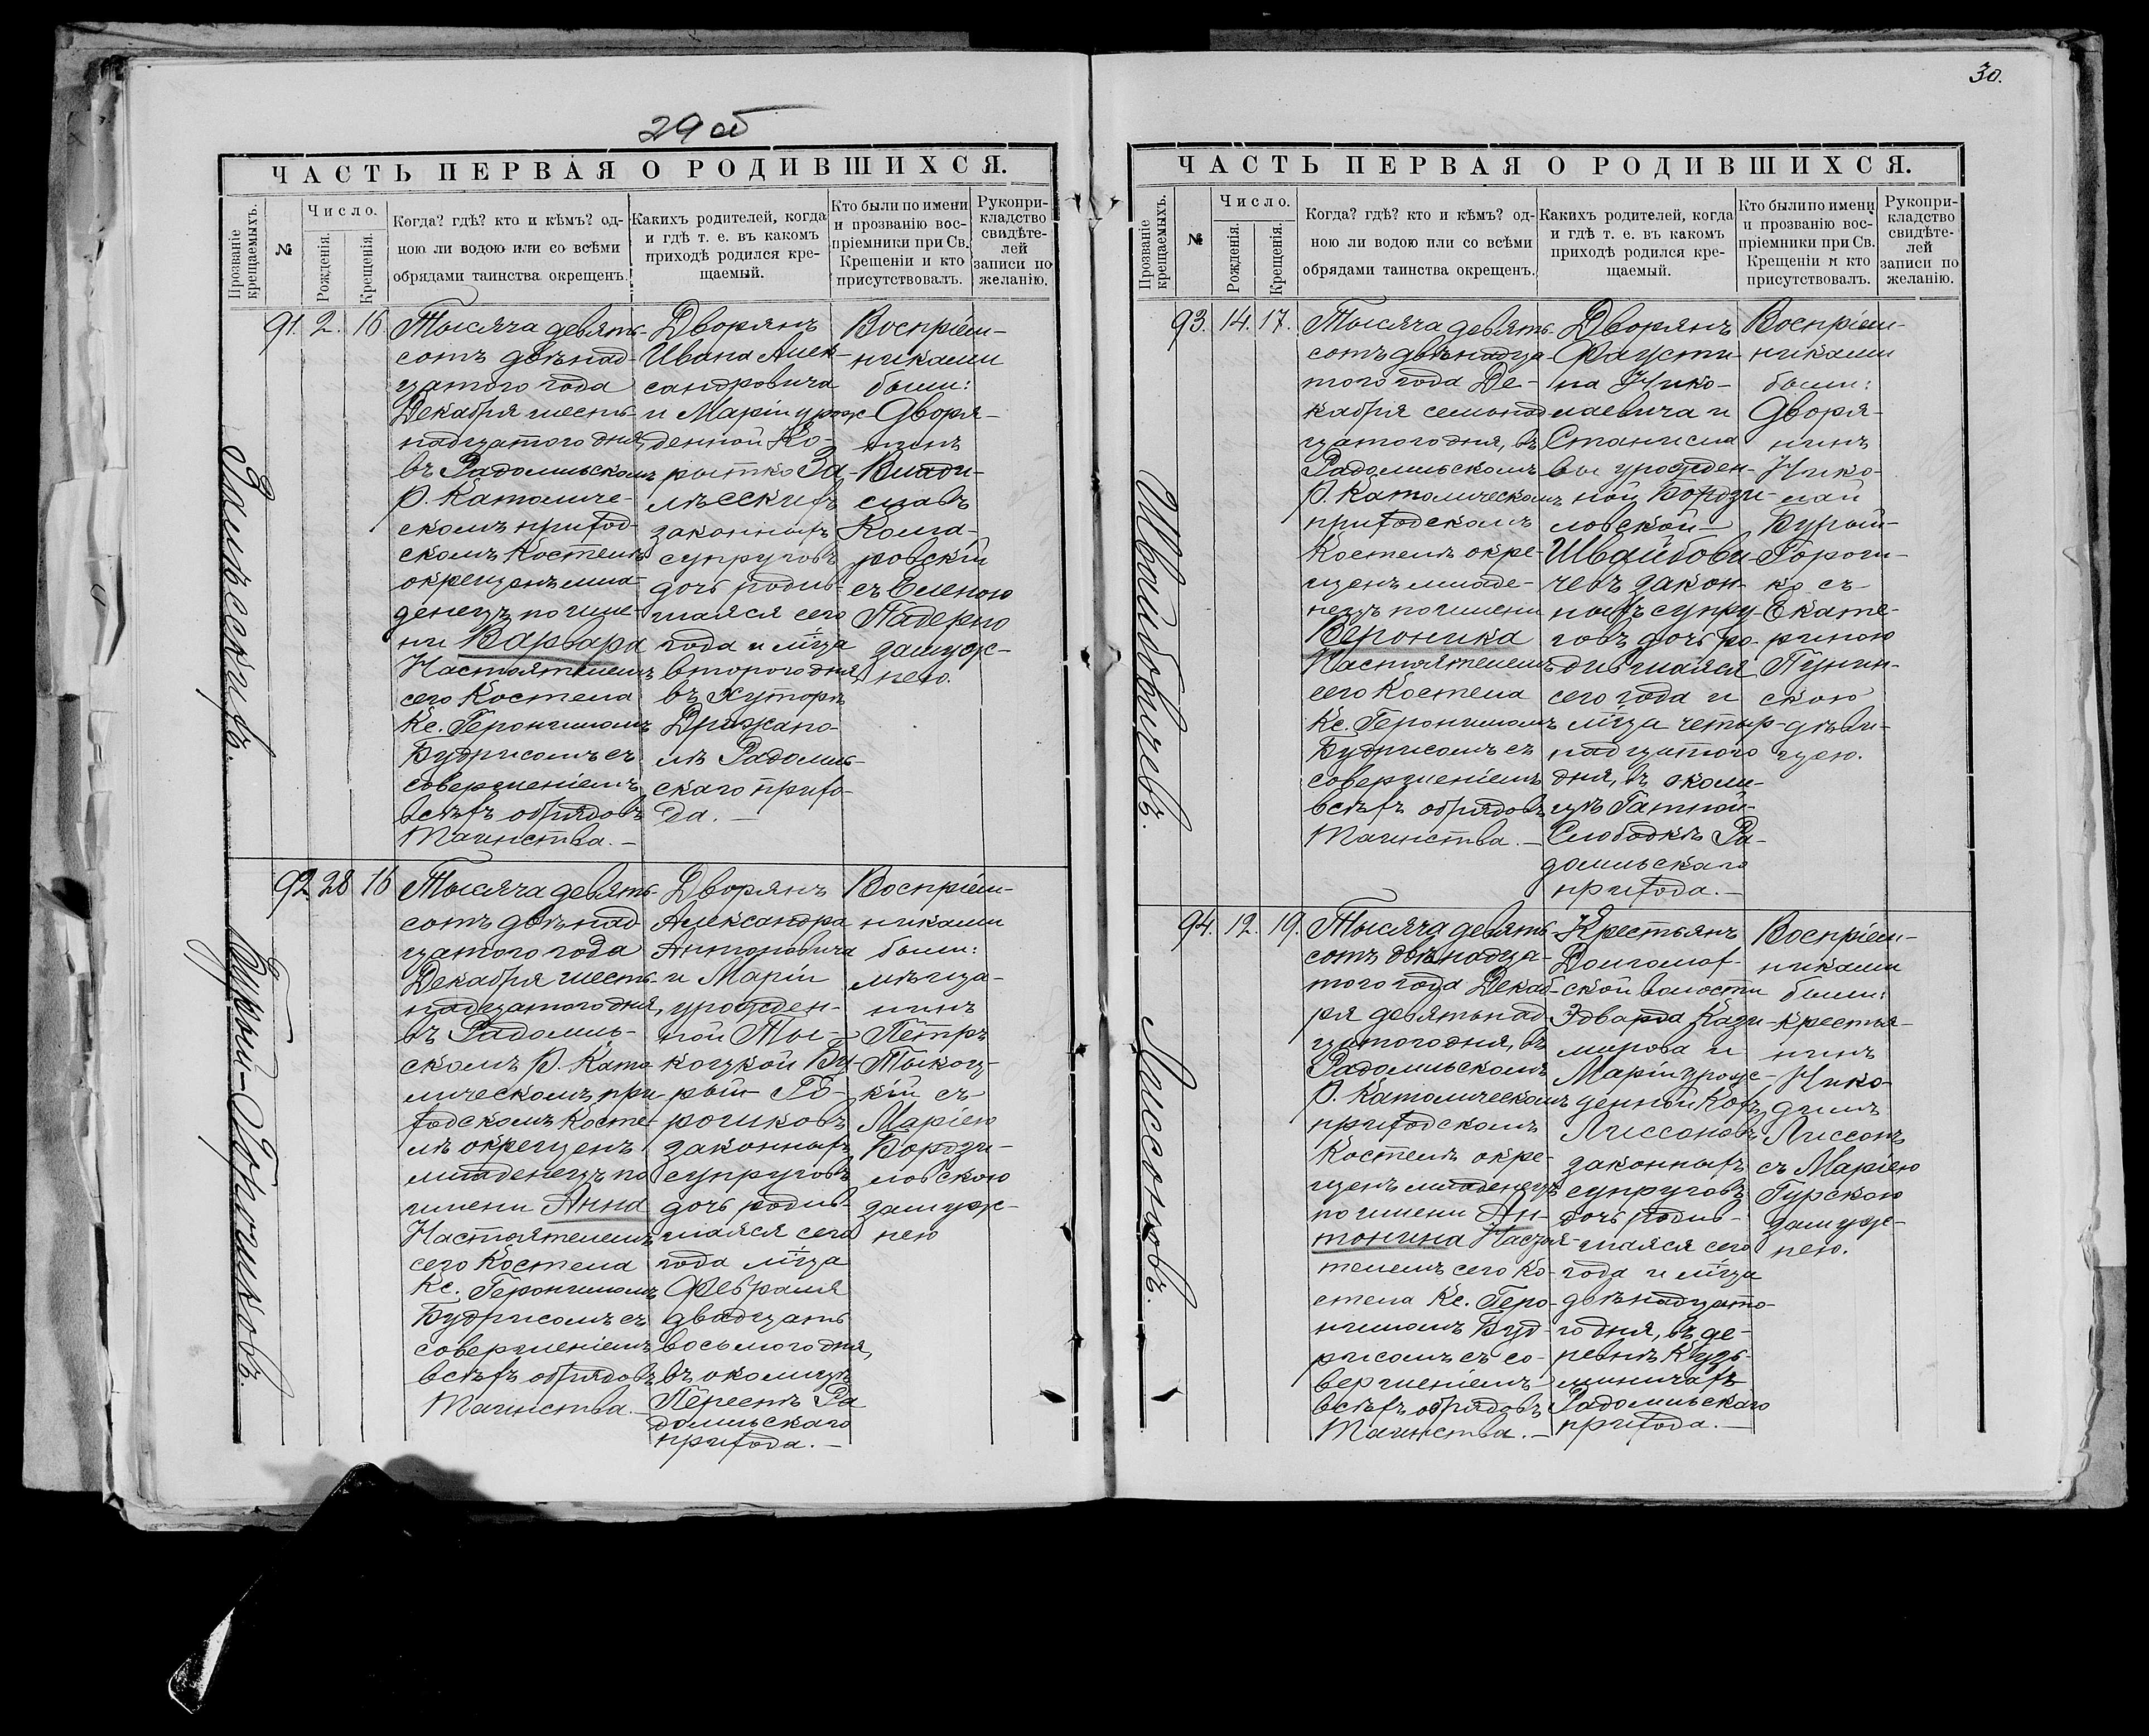 29 об
ЧАСТЬ ПЕРВАЯ О РОДИВШИХСЯ.
Прозваніе крещаемыхъ.
№
Число.
Рожденія.
Крещенія.
Когда? гдѣ? кто и кѣмъ? од-
ною ли водою или со всѣми
обрядами таинства окрещенъ.
Какихъ родителей, когда
и гдѣ т. е. въ какомъ
приходѣ родился кре-
щаемый.
Кто были по имени
и прозванію вос-
пріемники при Св.
Крещеніи и кто
присутствовалъ.
Рукопри-
кладство
свидѣте-
лей
записи по
желанію.
Залѣсскихъ.
91. 2. 16
Тысяча девять-
сотъ двѣнад-
цатого года
Декабря шест-
надцатого дня,
въ Радомльскомъ
Р. Католиче-
скомъ приход-
скомъ Костелѣ
окрещенъ мла-
денецъ по име-
ни Варвара
Настоятелемъ
сего Костела
Кс. Геронимомъ
Будрисомъ съ
совершеніемъ
всѣхъ обрядовъ
Таинства. —
Дворянъ
Ивана Алек-
сандровича
и Маріи урож-
денной Ко-
рытко За-
лѣсскихъ
законныхъ
супруговъ
дочь родив-
шаяся сего
года и м-ца
второго дня
въ хуторѣ
Држано-
лѣ Радомль-
скаго прихо-
да. —
Воспріем-
никами
были:
Дворя-
нинъ
Влади-
славъ
Кома-
ровскій
съ Еленою
Падерно
замуж-
нею.
Бурый-Горошковъ.
92 28 16
Тысяча девять-
сотъ двѣнад-
цатого года
Декабря шест-
надцатого дня,
въ Радомль-
скомъ Р. Като-
лическомъ при-
ходскомъ Косте-
лѣ окрещенъ
младенецъ по
имени Анна
Настоятелемъ
сего Костела
Кс. Геронимомъ
Будрисомъ съ
совершеніемъ
всѣхъ обрядовъ
Таинства. —
Дворянъ
Александра
Антоновича
и Маріи
урожден-
ной Ты-
коцкой Бу-
рый-Го-
рошковъ
законныхъ
супруговъ
дочь родив-
шаяся сего
года м-ца
Февраля
двадцать
восьмого дня,
въ околицѣ
Пересѣ Ра-
домльскаго
прихода. —
Воспріем-
никами
были:
мѣща-
нинъ
Петръ
Тыкоц-
кій съ
Маріею
Бордзи-
ловскою
замуж-
нею
30.
ЧАСТЬ ПЕРВАЯ О РОДИВШИХСЯ.
Прозваніе крещаемыхъ.
№
Число.
Рожденія.
Крещенія.
Когда? гдѣ? кто и кѣмъ? од-
ною ли водою или со всѣми
обрядами таинства окрещенъ.
Какихъ родителей, когда
и гдѣ т. е. въ какомъ
приходѣ родился кре-
щаемый.
Кто были по имени
и прозванію вос-
пріемники при Св.
Крещеніи и кто
присутствовалъ.
Рукопри-
кладство
свидѣте-
лей
записи по
желанію.
Швайбовичевъ.
93. 14. 17.
Тысяча девять-
сотъ двѣнадца-
того года Де-
кабря семнад-
цатого дня, въ
Радомльскомъ
Р. Католическомъ
приходскомъ
Костелѣ окре-
щенъ младе-
нецъ по имени
Вероника
Настоятелемъ
сего Костела
Кс. Геронимомъ
Будрисомъ съ
совершеніемъ
всѣхъ обрядовъ
Таинства. —
Дворянъ
Фаусти-
на Нико-
лаевича и
Станисла
вы урожден-
ной Бордзи-
ловской —
Швайбови-
чевъ закон-
ныхъ супру-
говъ дочь ро-
дившаяся
сего года и
м-ца четыр-
надцатого
дня, въ околи-
цѣ Гатной-
Слободкѣ Ра-
домльскаго
прихода. —
Воспріем-
никами
были:
Дворя-
нинъ
Нико-
лай
Бурый-
Горош-
ко съ
Екате-
риною
скою
дѣви-
цею.
Лиссоновъ.
94. 12. 19.
Тысяча девять-
сотъ двѣнадца-
того года Декаб-
ря девятнад-
цатого дня, въ
Радомльскомъ
Р. Католическомъ
приходскомъ
Костелѣ окре-
щенъ младенецъ
по имени Ан-
тонина Настоя-
телемъ сего Ко-
стела Кс. Геро-
нимомъ Буд-
рисомъ съ со-
вершеніемъ
всѣхъ обрядовъ
Таинства. —
Крестьянъ
Долгомох-
ской волости
Эдварда Кази-
мирова и
Маріи урож-
денной Кохъ
Лиссоновъ
законныхъ
супруговъ
дочь родив-
шаяся сего
года и м-ца
двѣнадцато-
го дня, въ де-
ревнѣ Кузь-
миничахъ
Радомльскаго
прихода. —
Воспріем-
никами
были:
крестья-
нинъ
Нико-
димъ
Лиссонъ
съ Маріею
Гурскою
замуж-
нею.